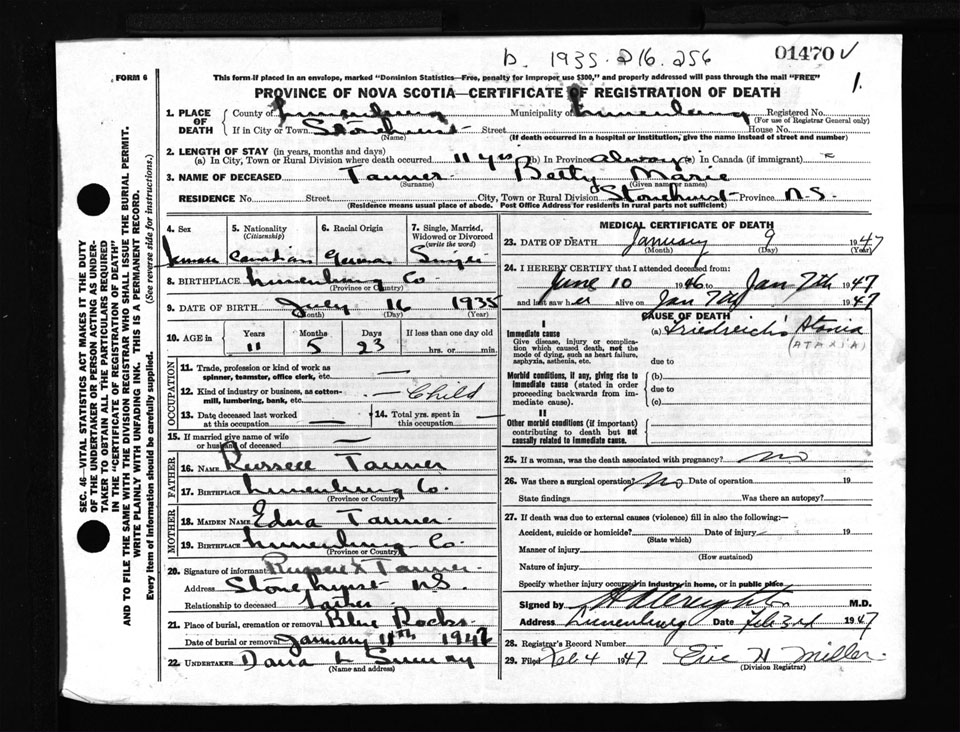 b. 1935. 216. 256
01470 ✓
FORM 6
This form if placed in an envelope, marked "Dominion Statistics—Free, penalty for improper use $300," and properly addressed will pass through the mail "FREE"
1.
PROVINCE OF NOVA SCOTIA—CERTIFICATE OF REGISTRATION OF DEATH
1. PLACE OF DEATH County of Lunenburg Municipality of Lunenburg Registered No.
(For use of Registrar General only)
If in City or Town Stonehurst Street House No.
(Name) (If death occurred in a hospital or institution, give the name instead of street and number)
2. LENGTH OF STAY (in years, months and days)
(a) In City, Town or Rural Division where death occurred 11 yrs (b) In Province always (c) In Canada (if immigrant)
3. NAME OF DECEASED Tanner Betty Marie
(Surname) (Given name or names)
RESIDENCE No. Street City, Town or Rural Division Stonehurst Province N.S.
(Residence means usual place of abode. Post Office Address for residents in rural parts not sufficient)
4. Sex 5. Nationality (Citizenship) 6. Racial Origin 7. Single, Married, Widowed or Divorced (write the word)
Female Canadian German Single
8. BIRTHPLACE Lunenburg Co.
(Province or County)
9. DATE OF BIRTH July 16 1935
(Month) (Day) (Year)
10. AGE in Years Months Days If less than one day old
11 5 23 hrs. or min.
OCCUPATION
11. Trade, profession or kind of work as spinner, teamster, office clerk, etc. —
12. Kind of industry or business, as cotton-mill, lumbering, bank, etc. — Child
13. Date deceased last worked at this occupation — 14. Total yrs. spent in this occupation —
15. If married give name of wife or husband of deceased —
FATHER
16. NAME Russell Tanner
17. BIRTHPLACE Lunenburg Co.
(Province or County)
MOTHER
18. MAIDEN NAME Edna Tanner
19. BIRTHPLACE Lunenburg Co.
(Province or County)
20. Signature of informant Russell Tanner
Address Stonehurst N.S.
Relationship to deceased Father
21. Place of burial, cremation or removal Blue Rocks
Date of burial or removal January 11th 1947
22. UNDERTAKER
(Name and address)
MEDICAL CERTIFICATE OF DEATH
23. DATE OF DEATH January 9 1947
(Month) (Day) (Year)
24. I HEREBY CERTIFY that I attended deceased from:
June 10 1946 to Jan 7th 1947
and last saw her alive on Jan 7th 1947
CAUSE OF DEATH
I
Immediate cause (a) Friedreich's Ataxia
(ATAXIA)
Give disease, injury or complication which caused death, not the mode of dying, such as heart failure, asphyxia, asthenia, etc.
due to
Morbid conditions, if any, giving rise to immediate cause (stated in order proceeding backwards from immediate cause).
(b)
due to
(c)
II
Other morbid conditions (if important) contributing to death but not causally related to immediate cause.
25. If a woman, was the death associated with pregnancy? no
26. Was there a surgical operation? No Date of operation 19
State findings Was there an autopsy?
27. If death was due to external causes (violence) fill in also the following:—
Accident, suicide or homicide? Date of injury 19
(State which)
Manner of injury
(How sustained)
Nature of injury
Specify whether injury occurred in industry, in home, or in public place
Signed by M.D.
Address Lunenburg Date Feb 3rd 1947
28. Registrar's Record Number
29. Filed Feb 4 1947 Eric H Miller
(Division Registrar)
SEC. 46—VITAL STATISTICS ACT MAKES IT THE DUTY
OF THE UNDERTAKER OR PERSON ACTING AS UNDER-
TAKER TO OBTAIN ALL THE PARTICULARS REQUIRED
IN THE "CERTIFICATE OF REGISTRATION OF DEATH"
AND TO FILE THE SAME WITH THE DIVISION REGISTRAR WHO SHALL ISSUE THE BURIAL PERMIT.
WRITE PLAINLY WITH UNFADING INK. THIS IS A PERMANENT RECORD.
Every item of information should be carefully supplied. (See reverse side for instructions.)